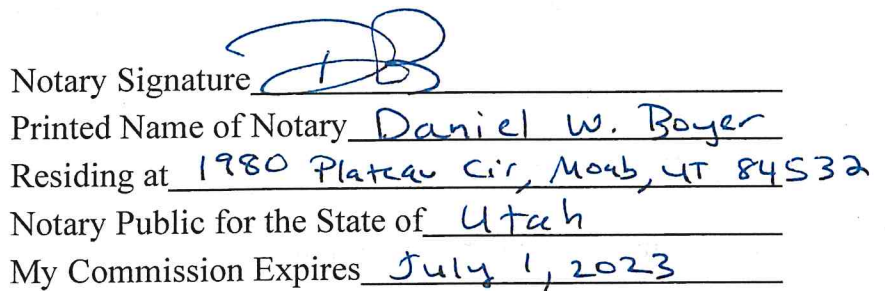 Notary Signature DB
Printed Name of Notary Daniel W. Boyer
Residing at 1980 Plateau Cir, Moab, UT 84532
Notary Public for the State of Utah
My Commission Expires July 1, 2023